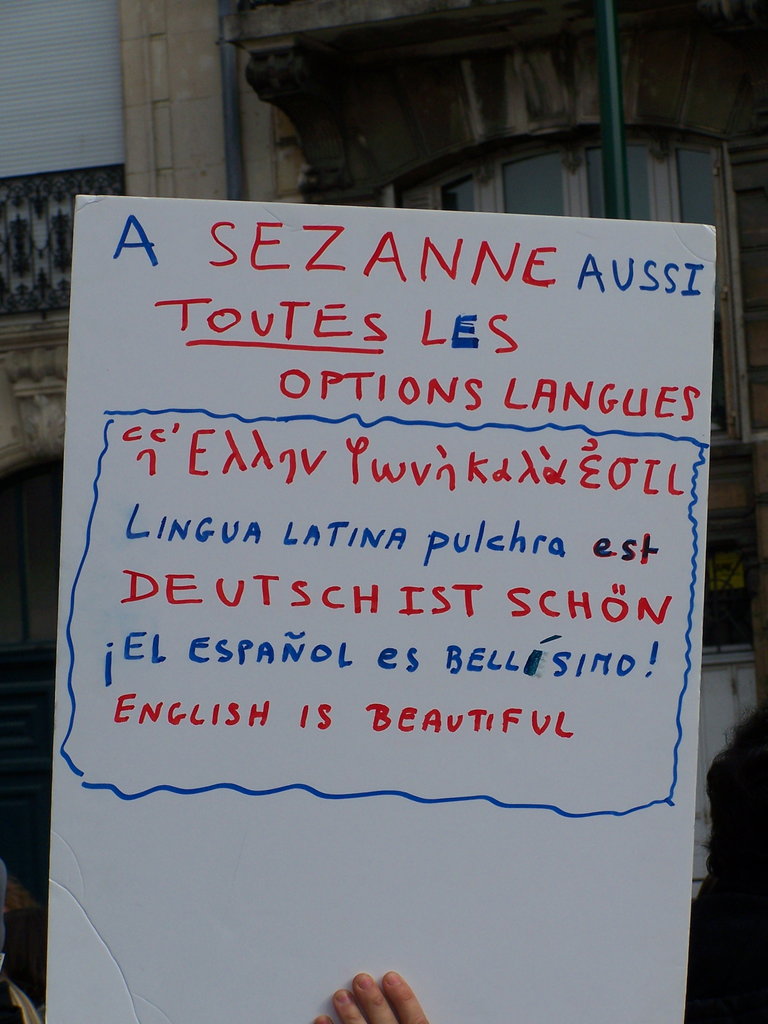 A SEZANNE AUSSI
TOUTES LES
OPTIONS LANGUES
ἡ Ἑλλην φωνὴ καλὰ ἐστι
LINGUA LATINA pulchra est
DEUTSCH IST SCHÖN
¡EL ESPAÑOL es BELLÍSIMO!
ENGLISH IS BEAUTIFUL